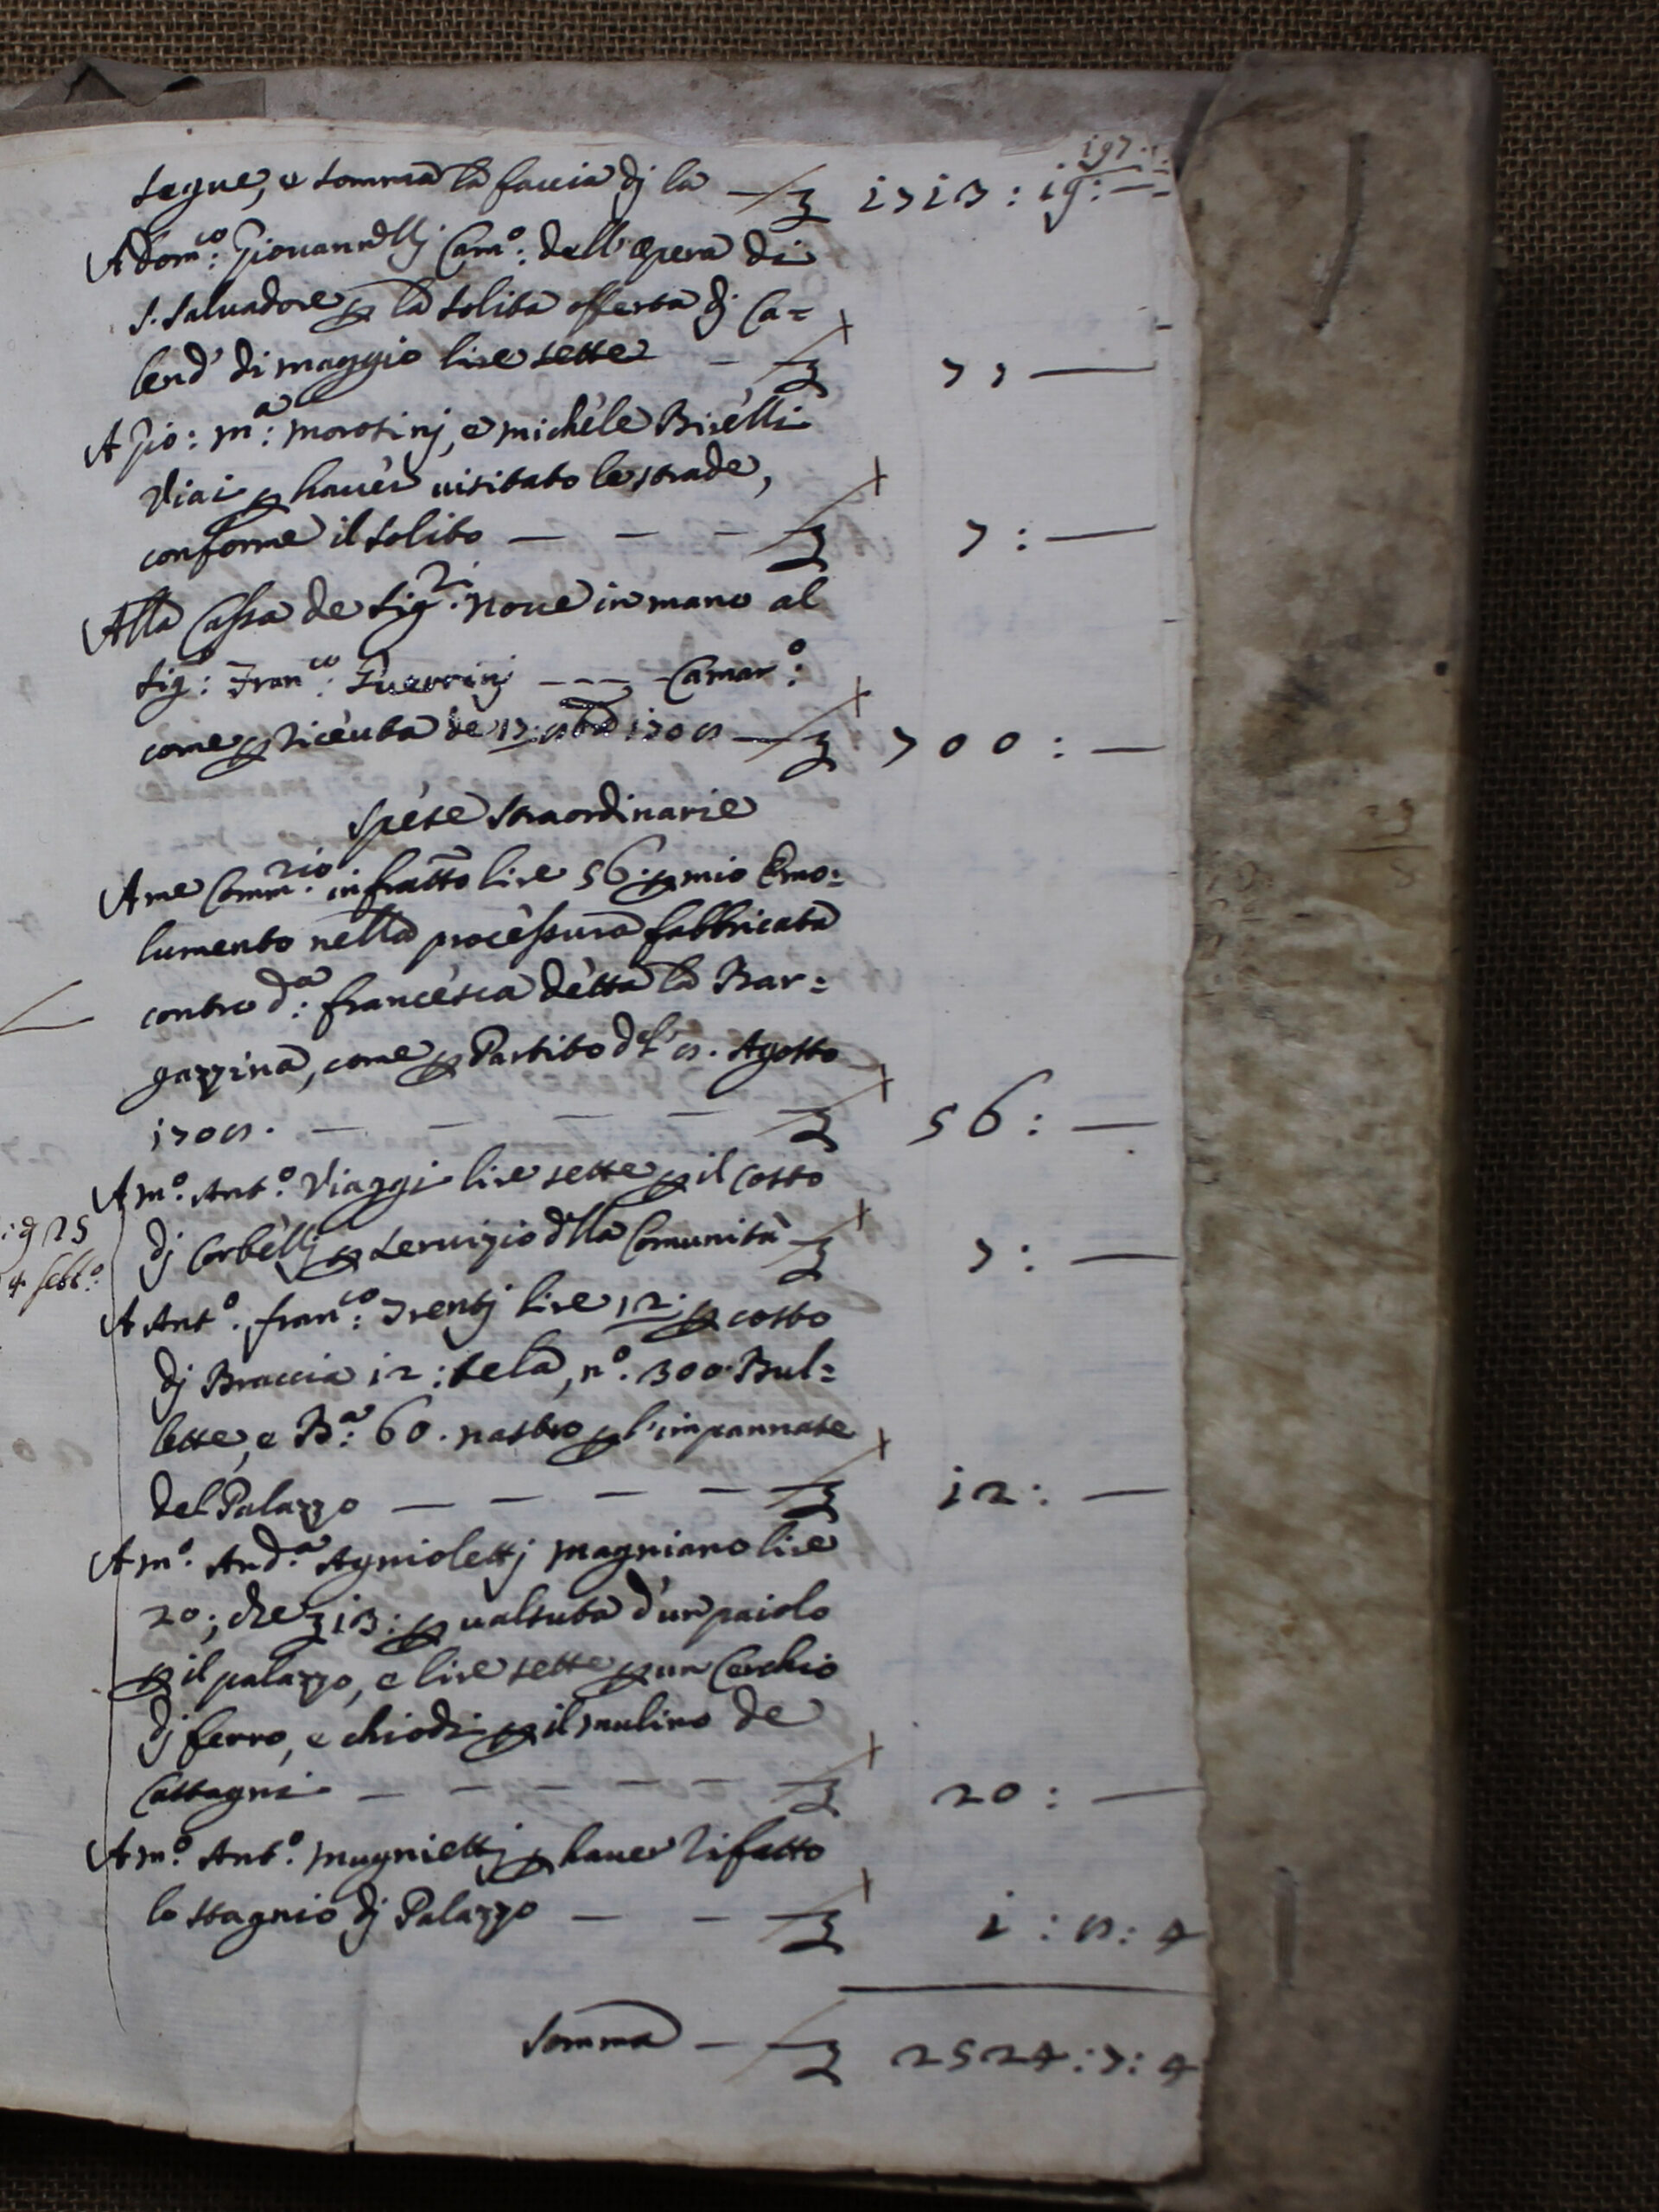 197
Segue, e somma la faccia dj la — £ 1713 : 19 : —
A Dom:co Giovannellj Cam:o dell'Opera di
S. Salvadore p la solita offerta dj Ca=
lend' di maggio lire sette — £ 7 , —
A Gio: m:a morosinj, e michele Birelli
Viai p haver visitato le strade,
conforme il solito — — — £ 7 : —
Alla Cassa de Sig:ri Nove in mano al
Sig:o Fran:co Guerrinj --- Camar:o
come p riceuta de 17: 8bre 1708 — £ 700 : —
Spese straordinarie
A me Comm:rio infratto lire 56: p mio Emo=
lumento nella processura fabbricata
contro d:a francesca detta la Bar=
gazzina, come p Partito del' 8. Agosto
1708. — — — — £ 56 : —
A m:o Ant:o Viaggi lire sette p il costo
dj Corbellj p servizio dlla Comunità £ 7 : —
A Ant:o fran:co Trentj lire 12: p costo
dj Braccia 12: tela, n:o 300 Bul=
lette, e B:a 60. nastro p l'impannate
del Palazzo — — — — £ 12 : —
A m:o And:a Agniolettj magniano lire
20; che £ 13: p valsuta d'un paiolo
p il palazzo, e lire sette p un Cerchio
dj ferro, e chiodi p il mulino de
Castagni — — — — — £ 20 : —
A m:o Ant:o mugniettj p haver rifatto
lo stagnio dj Palazzo — — £ 1 : 8 : 4
Somma — £ 2524 : 7 : 4